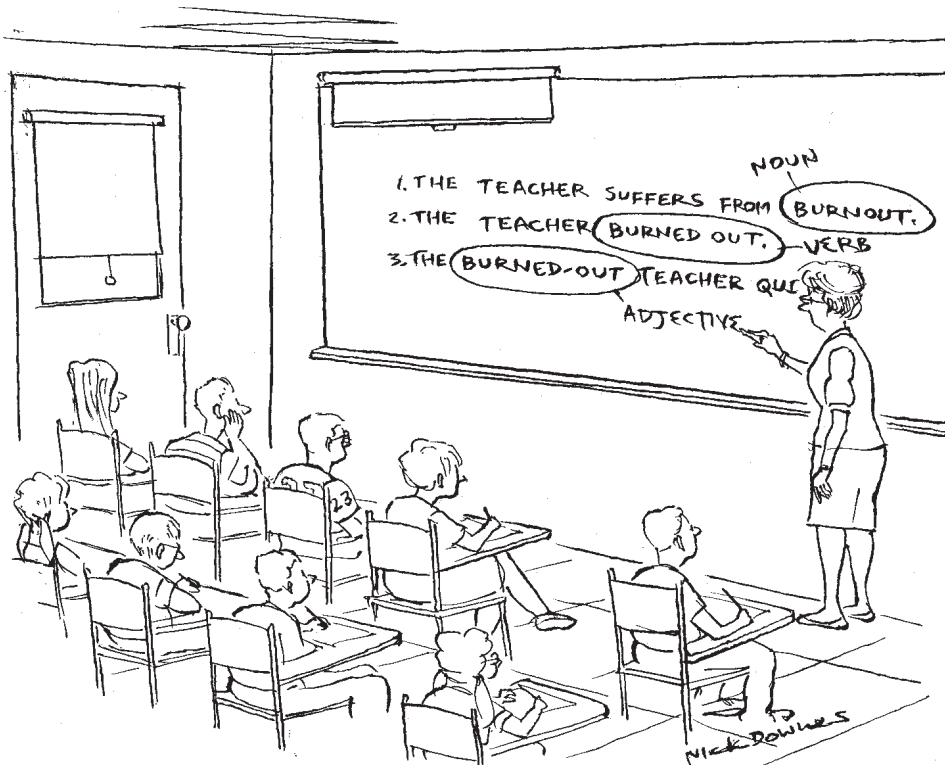 NOUN
1. THE TEACHER SUFFERS FROM BURNOUT.
2. THE TEACHER BURNED OUT. VERB
3. THE BURNED-OUT TEACHER QUI
ADJECTIVE
23
NICK DOWNES